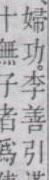 婦功。李善引
十無子者爲